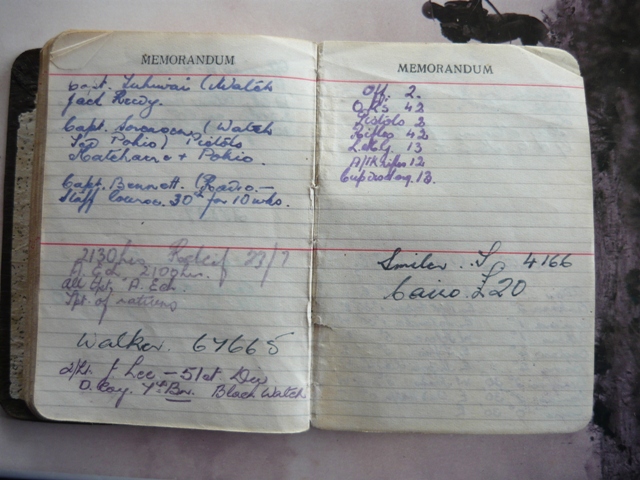 MEMORANDUM
Capt. (Watch
Jack Reedy.
Capt. (Watch
Pokio) Pistols
+ Pokio.
Capt. Bennett. (Radio. —
Staff Course. 30th for 10 wks.
2130 hrs Relief 23/7
A. Ech. 2100 hrs.
all A. Ech.
of returns
Walker. 67665
2/Lt. J Lee — 51st Div
D. Coy. 7th Bn. Black Watch
MEMORANDUM
Off. 2.
O.R's 42
Pistols 2
Rifles 42
13
A/TK Rifles 12
13.
Smiler. 4166
Cairo £20